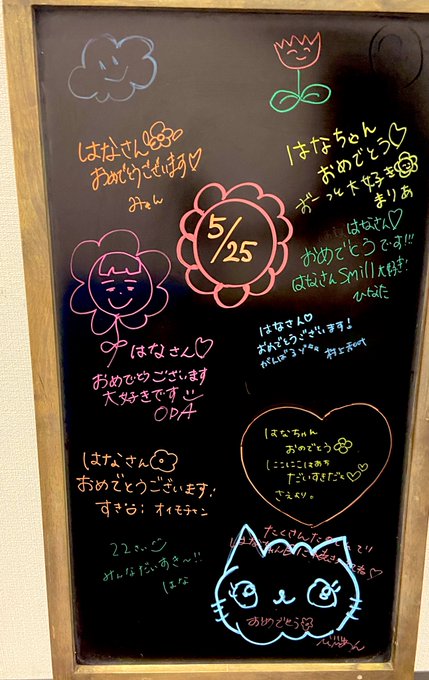 はなさん
おめでとうございます♡
はなちゃん♡
おめでとう♡
ずーっと大好き
まりあ
5/25
はなさん♡
おめでとうです!!!
はなさんSmill大好き!
ひなた
はなさん♡
おめでとうございます!
がんばるゾ
はなさん♡
おめでとうございます
大好きです
ODA
はなちゃん
おめでとう
にこにこはあち
だいすきだと♡♡
さえより。
はなさん
おめでとうございます!
すき オイモチャン
22さい
みんなだいすき〜!!
はな
たくさん
おめでとう